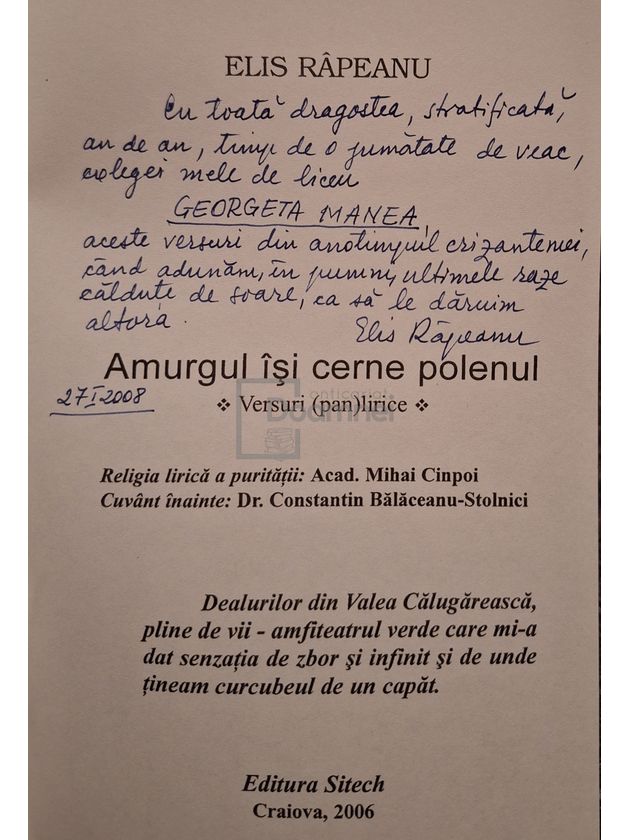 ELIS RÂPEANU
Cu toată dragostea, stratificată,
an de an, timp de o jumătate de veac,
colegei mele de liceu
GEORGETA MANEA,
aceste versuri din anotimpul crizantemei,
când adunăm, în pumni, ultimele raze
călduțe de soare, ca să le dăruim
altora.
Elis Râpeanu
Amurgul îşi cerne polenul
27 I 2008
anticariat
Doamnei
❖ Versuri (pan)lirice ❖
Religia lirică a purităţii: Acad. Mihai Cinpoi
Cuvânt înainte: Dr. Constantin Bălăceanu-Stolnici
Dealurilor din Valea Călugărească,
pline de vii - amfiteatrul verde care mi-a
dat senzaţia de zbor şi infinit şi de unde
ţineam curcubeul de un capăt.
Editura Sitech
Craiova, 2006